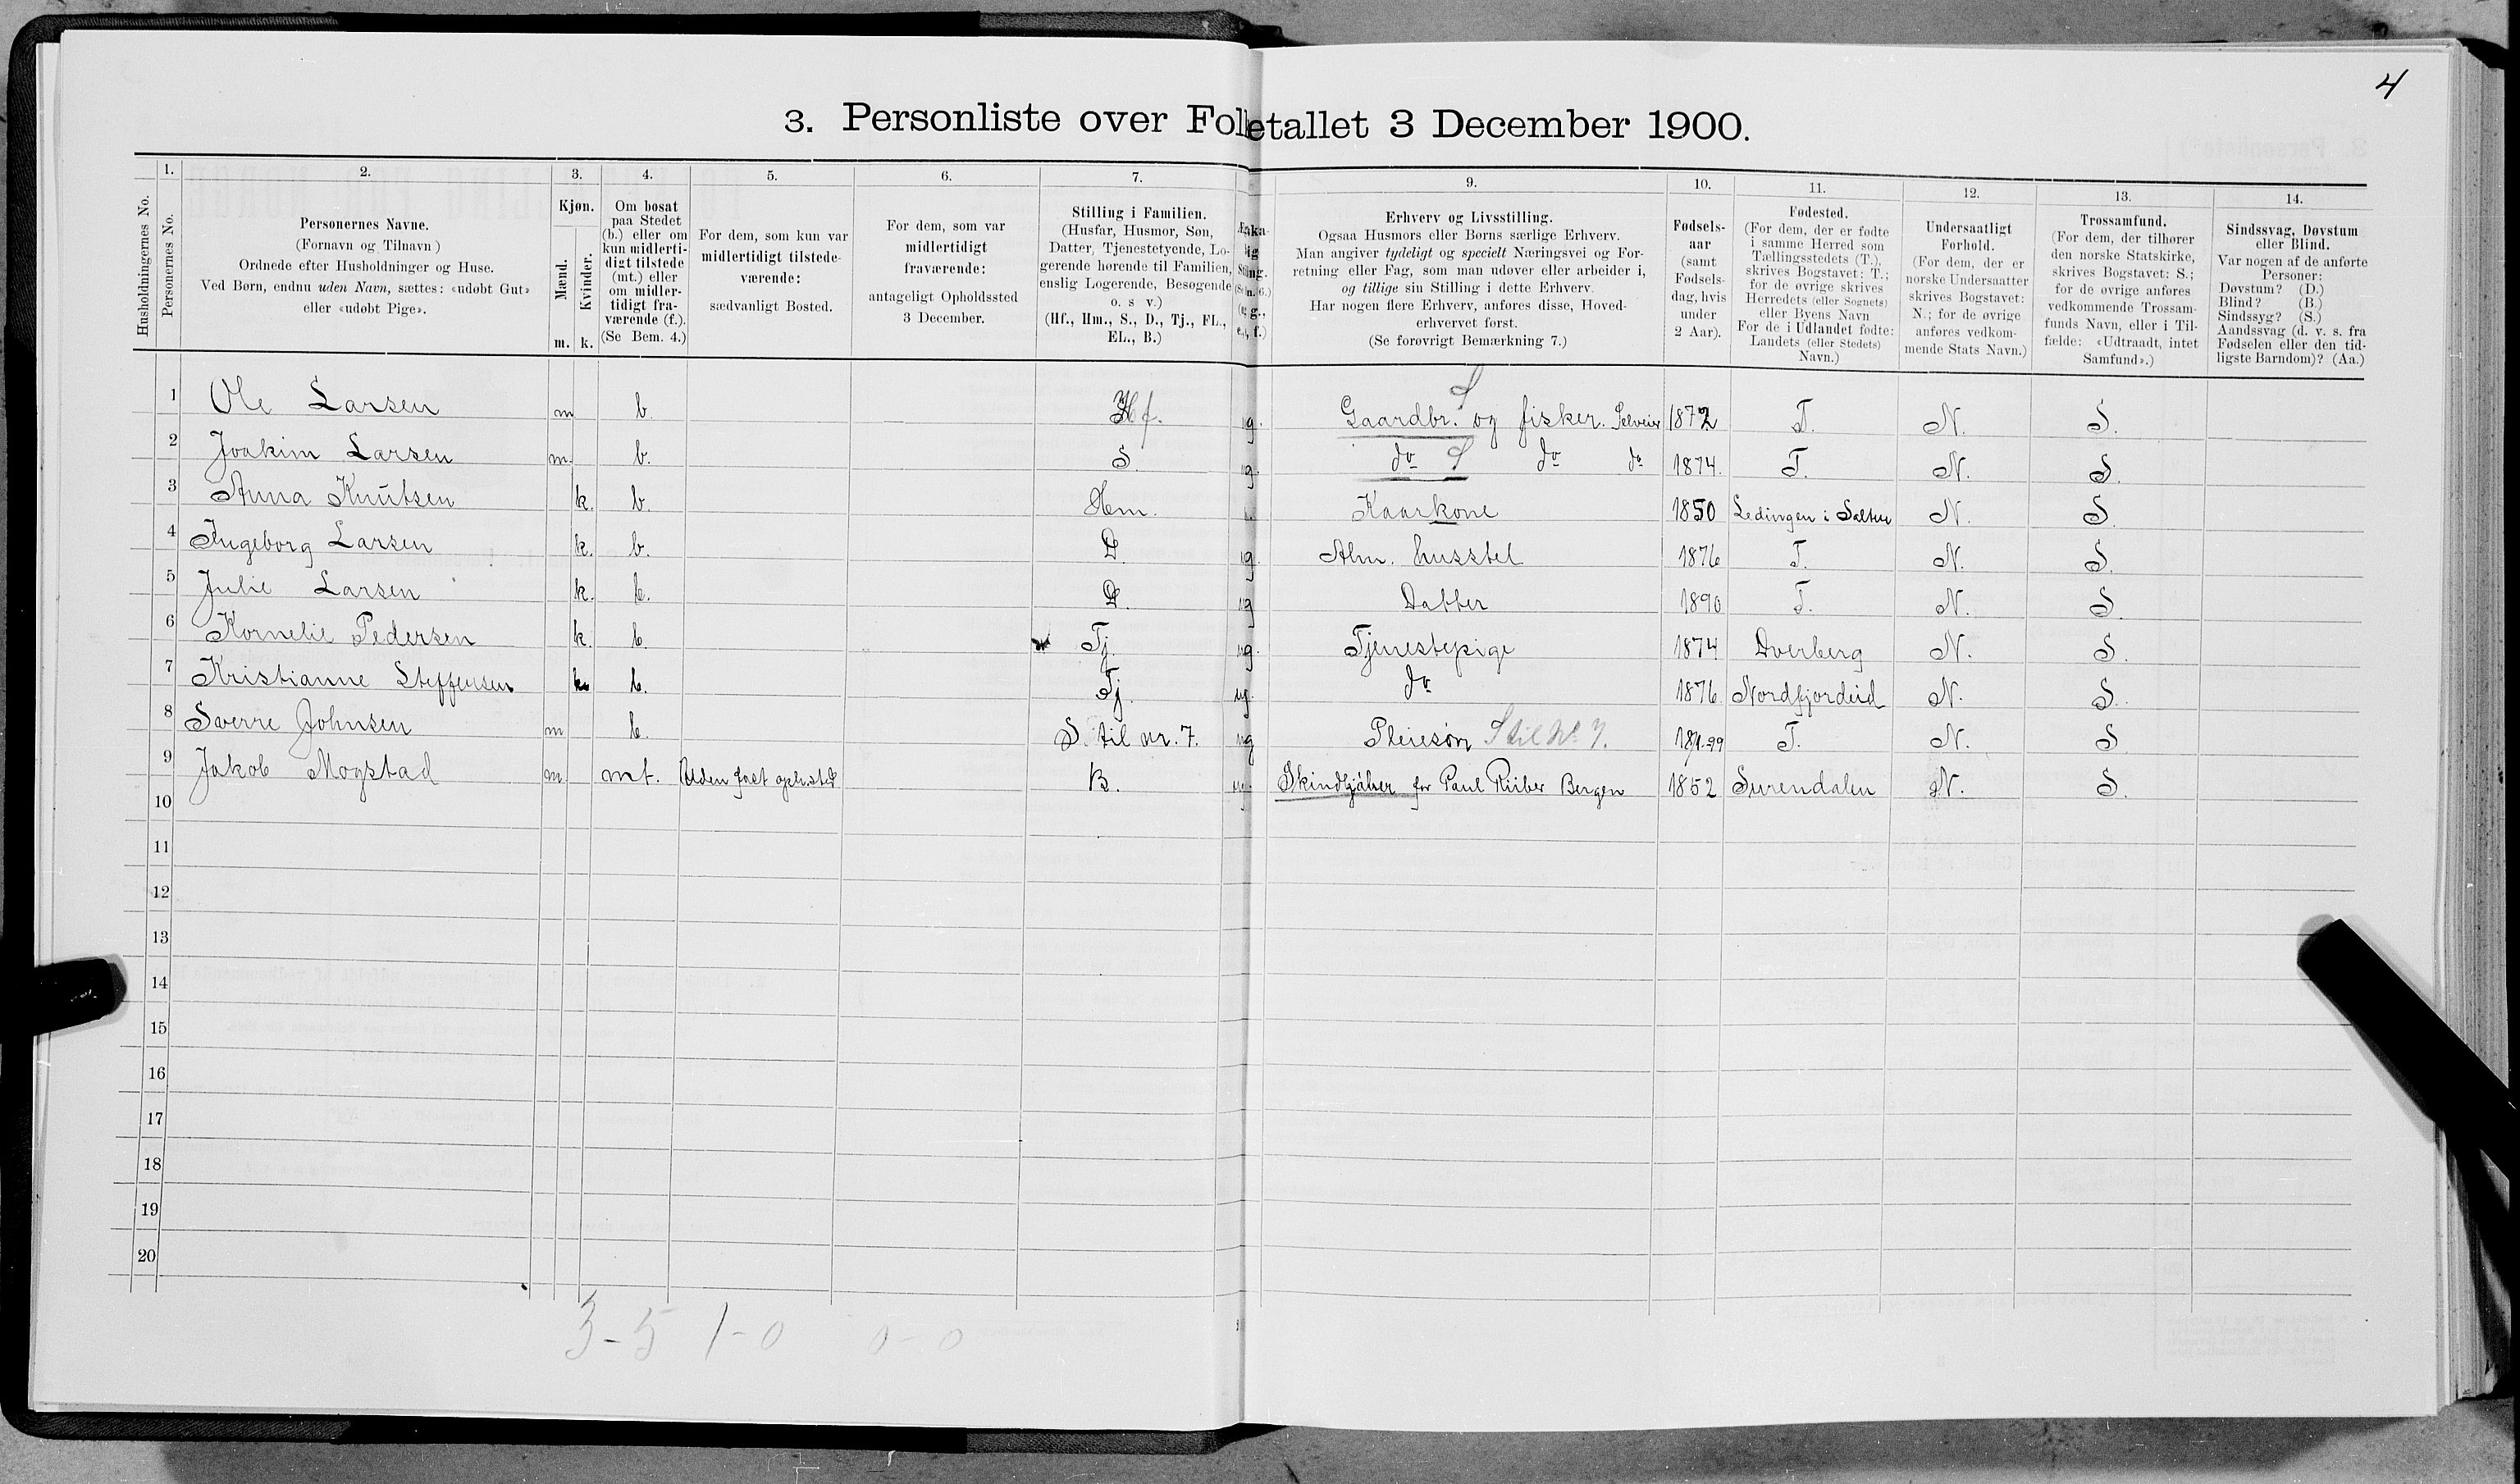 4
3. Personliste over Folketallet 3 December 1900.
Husholdningernes No.
1.
Personernes No.
2.
Personernes Navne.
(Fornavn og Tilnavn)
Ordnede efter Husholdninger og Huse.
Ved Børn, endnu uden Navn, sættes: «udøbt Gut»
eller «udøbt Pige».
3.
Kjøn.
Mænd.
Kvinder.
m. k.
4.
Om bosat
paa Stedet
(b.) eller om
kun midlerti-
digt tilstede
(mt.) eller
om midler-
tidigt fra-
værende (f.).
(Se Bem. 4.)
5.
For dem, som kun var
midlertidigt tilstede-
værende:
sædvanligt Bosted.
6.
For dem, som var
midlertidigt
fraværende:
antageligt Opholdssted
3 December.
7.
Stilling i Familien.
(Husfar, Husmor, Søn,
Datter, Tjenestetyende, Lo-
gerende hørende til Familien,
enslig Logerende, Besøgende
o. s v.)
(Hf., Hm., S., D., Tj., FL.,
EL., B.)
9.
Erhverv og Livsstilling.
Ogsaa Husmors eller Børns særlige Erhverv.
Man angiver tydeligt og specielt Næringsvei og For-
retning eller Fag, som man udøver eller arbeider i,
og tillige sin Stilling i dette Erhverv.
Har nogen flere Erhverv, anføres disse, Hoved-
erhvervet først.
(Se forøvrigt Bemærkning 7.)
10.
Fødsels-
aar
(samt
Fødsels-
dag, hvis
under
2 Aar).
11.
Fødested.
(For dem, der er fødte
i samme Herred som
Tællingsstedets (T.),
skrives Bogstavet: T.;
for de øvrige skrives
Herredets (eller Sognets)
eller Byens Navn
For de i Udlandet fødte:
Landets (eller Stedets)
Navn.)
12.
Undersaatligt
Forhold.
(For dem, der er
norske Undersaatter
skrives Bogstavet:
N.; for de øvrige
anføres vedkom-
mende Stats Navn.)
13.
Trossamfund.
(For dem, der tilhører
den norske Statskirke,
skrives Bogstavet: S.;
for de øvrige anføres
vedkommende Trossam-
funds Navn, eller i Til-
fælde: «Udtraadt, intet
Samfund».)
14.
Sindssvag, Døvstum
eller Blind.
Var nogen af de anførte
Personer:
Døvstum? (D.)
Blind? (B.)
Sindssyg? (S.)
Aandssvag (d. v. s. fra
Fødselen eller den tid-
ligste Barndom)? (Aa.)
1 Ole Larsen m b. Hf. g. Gaardbr. S og fisker. Selveier 1872 T. N. S.
2 Joakim Larsen m. b. S. g. do S do do 1874. T. N. S.
3 Anna Knutsen k. b. Hm. Kaarkone 1850 Lødingen i Salten N. S.
4 Ingeborg Larsen k. b. D. g. Alm. husstel 1876 T. N. S.
5 Julie Larsen k. b. D. ug Datter 1890 T. N. S.
6 Kornelie Pedersen k. b. Tj. ug. Tjenestepige 1874 Dverberg N. S.
7 Kristianne Steffensen k. b. Tj. ug. do 1876 Nordfjordeid N. S.
8 Sverre Johnsen m b. S. til nr. 7. ug Pleiesøn S til No 7. T. N. S
9 Jakob Mogstad m mt. Uden fast opl.sted B. ug. Skindkjøber for Paul Riiber Bergen 1852 Surendalen N. S.
10
11
12
13
14
15
16
17
18
19
20
3-5 1-0 0-0